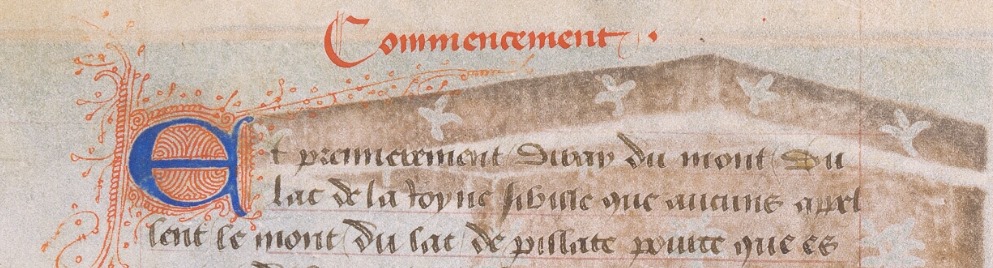 Commencement.
Et premierement diray du mont du
lac de la Royne sibille que aucuns apel
lent le mont du lac de pillate pource que es